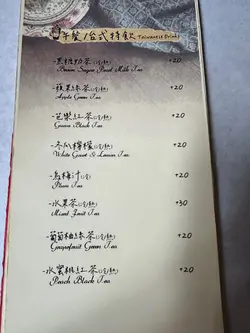 午餐/台式特飲 Taiwanese Drinks
-黑糖奶茶(冷/熱) +20
Brown Sugar Pearl Milk Tea
-蘋果綠茶(冷/熱) +20
Apple Green Tea
-芭樂紅茶(冷/熱) +20
Guava Black Tea
-冬瓜檸檬(冷/熱) +20
White Gourd & Lemon Tea
-烏梅汁(冷) +20
Plum Tea
-水果茶(冷/熱) +30
Mixed Fruit Tea
-葡萄柚綠茶(冷/熱) +20
Grapefruit Green Tea
-水蜜桃紅茶(冷/熱) +20
Peach Black Tea